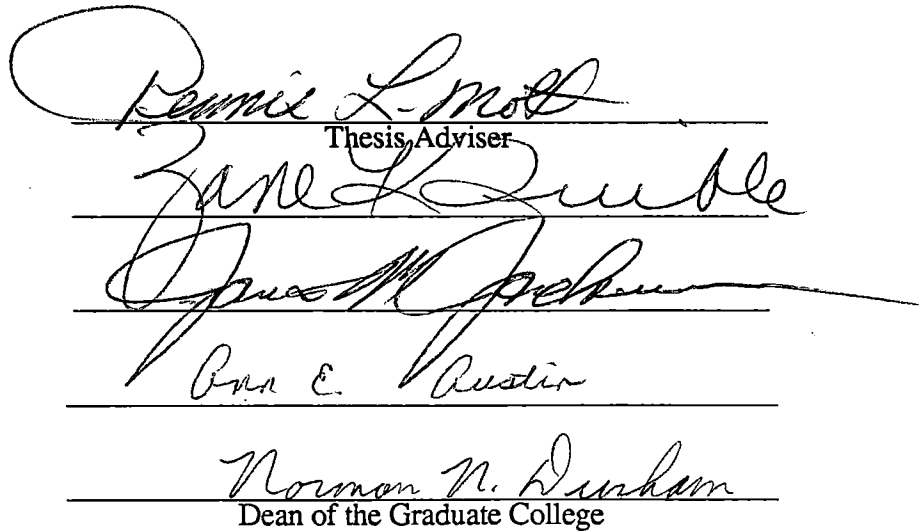 Dennis L. Mott
Thesis Adviser
Zane L
James M
Ann E. Austin
Norman N. Durham
Dean of the Graduate College